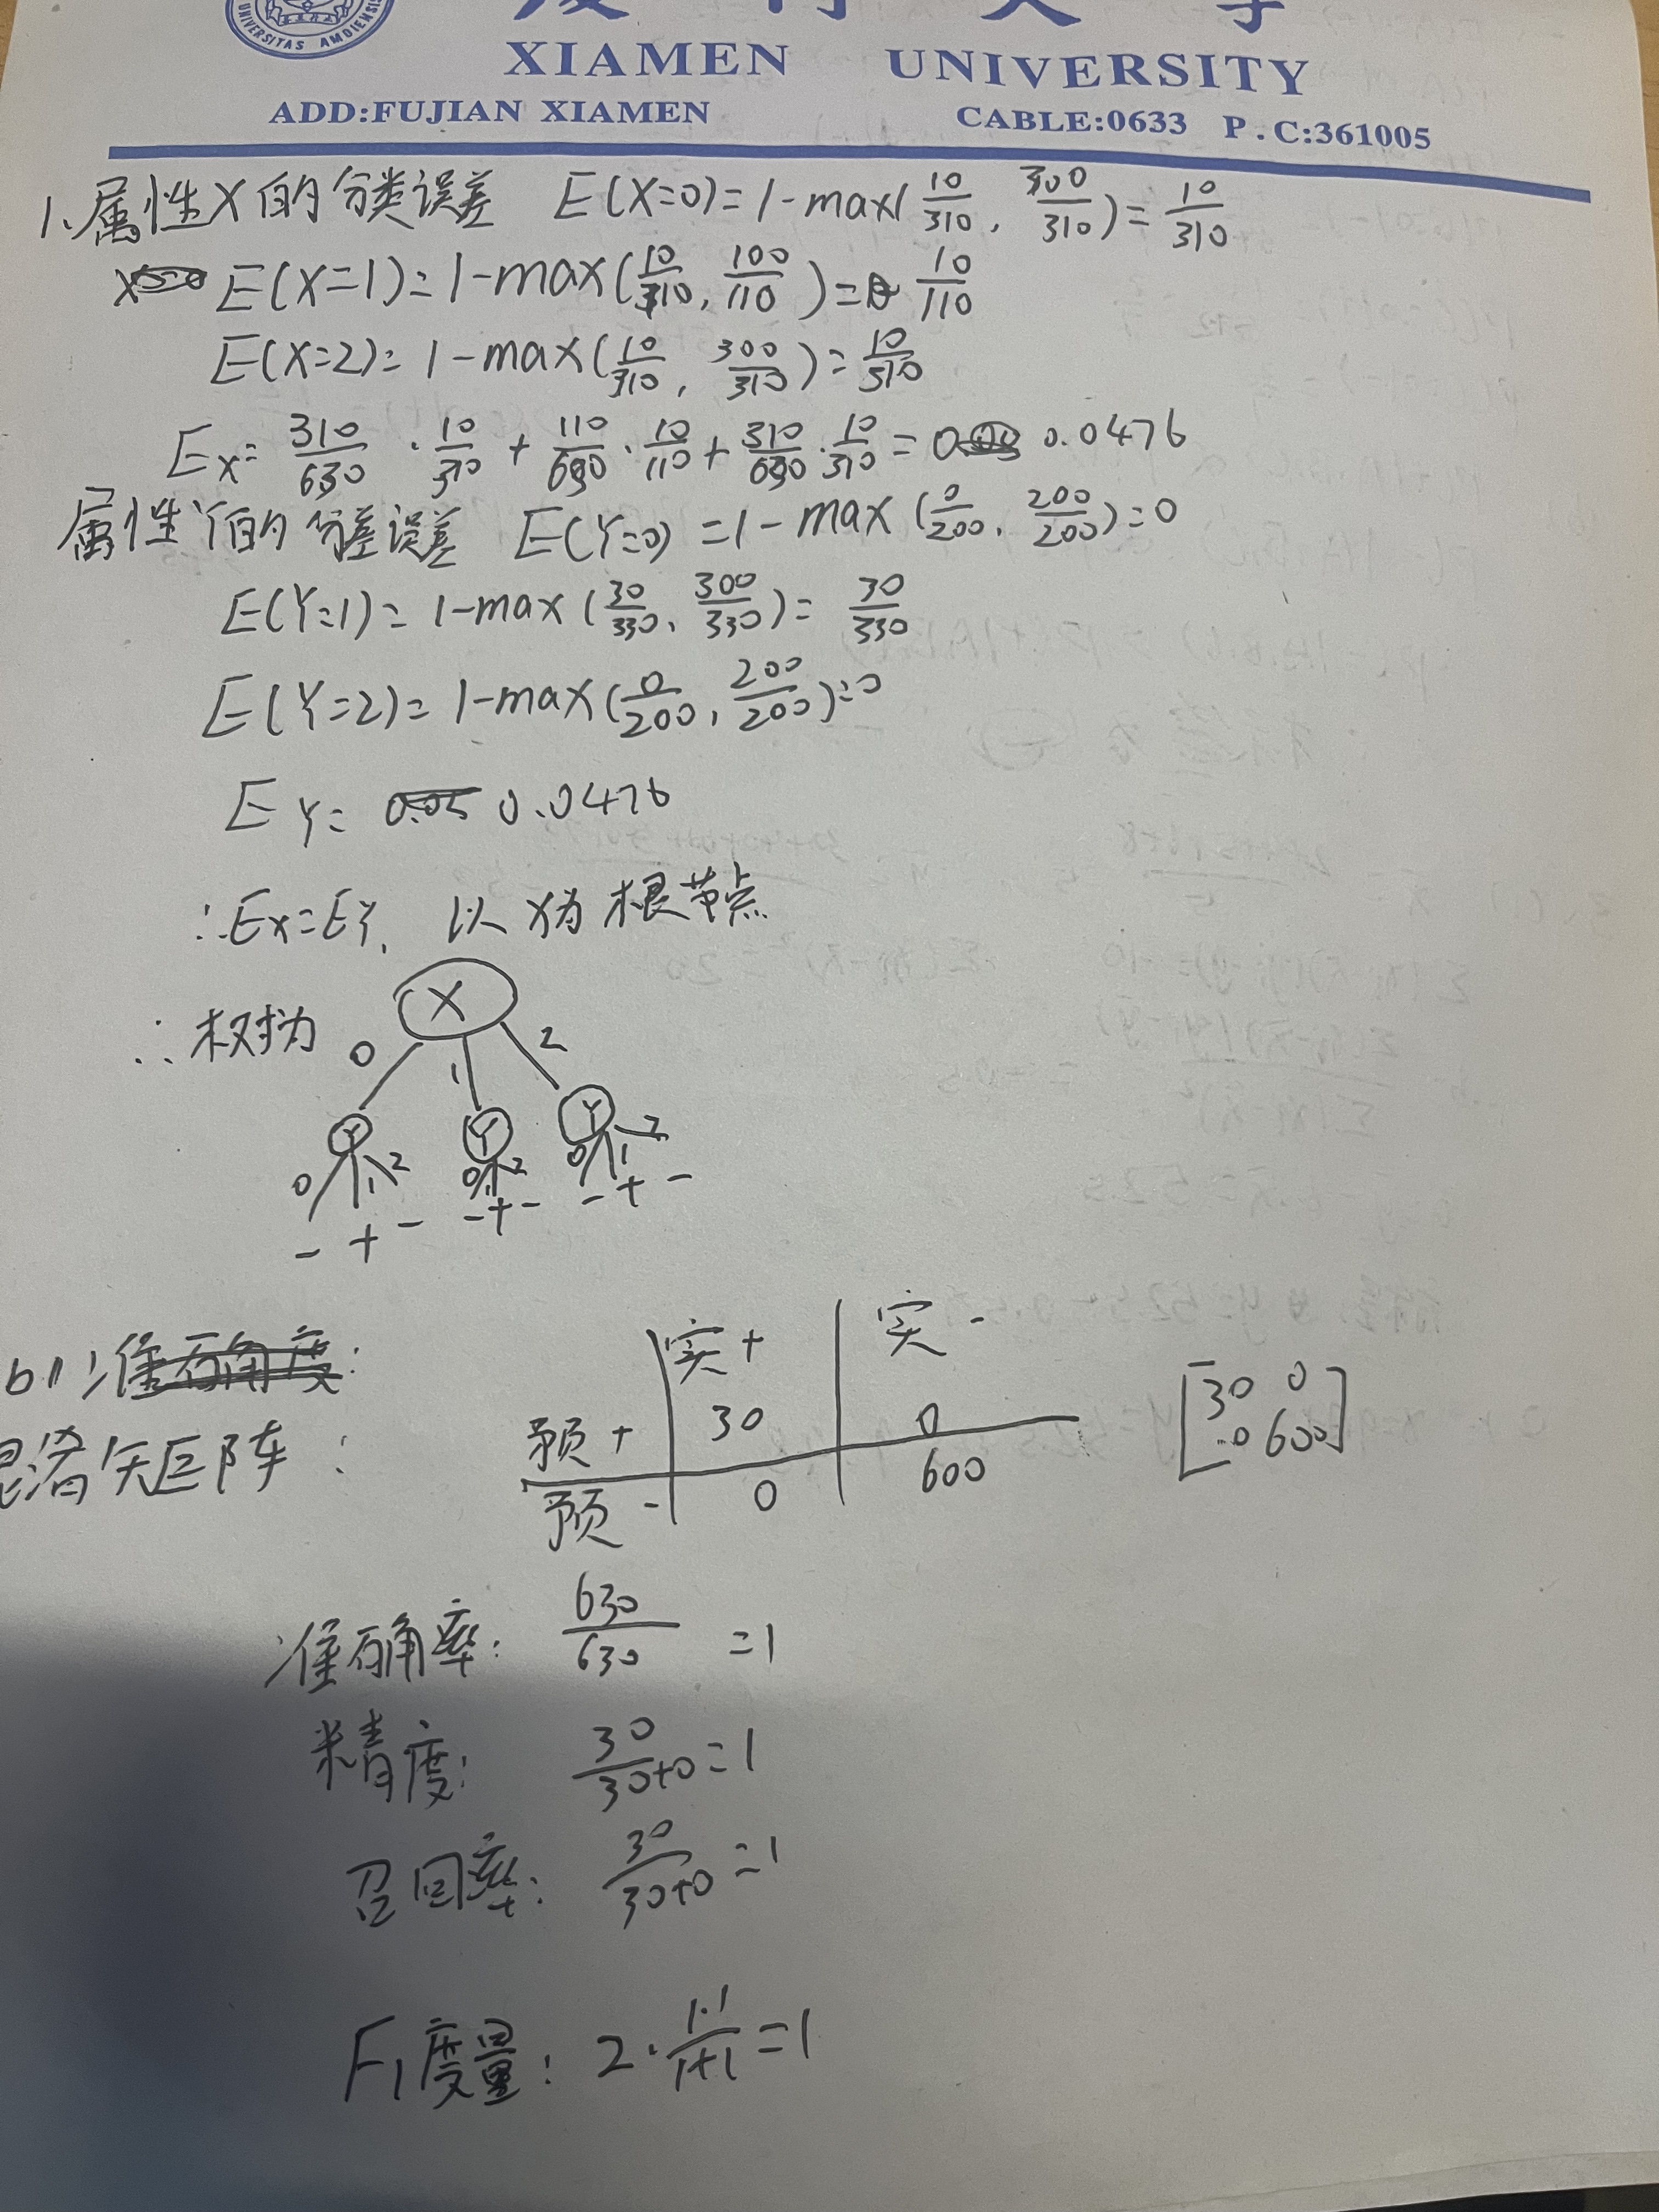 UNIVERSITAS AMOIENSIS
XIAMEN UNIVERSITY
ADD:FUJIAN XIAMEN CABLE:0633 P.C:361005
1、属性X的分类误差 E(X=0)=1-max(10/310, 300/310)=10/310
E(X=1)=1-max(10/310, 100/110)=10/110
E(X=2)=1-max(10/310, 300/310)=10/310
Ex=310/630·10/310+110/630·10/110+310/630·10/310=0.0476
属性Y的分差误差 E(Y=0)=1-max(0/200, 200/200)=0
E(Y=1)=1-max(30/330, 300/330)=30/330
E(Y=2)=1-max(0/200, 200/200)=0
EY=0.0476
∴Ex=EY, 以X为根节点
∴权为
X
0 1 2
Y Y Y
0 1 2 0 1 2 0 1 2
- + - - + - - + -
b1)准确度:
实+ 实-
混淆矩阵:
预+ 30 0
预- 0 600
[30 0
0 600]
准确率: 630/630 =1
精度: 30/30+0=1
召回率: 30/30+0=1
F1度量: 2·1·1/1+1=1